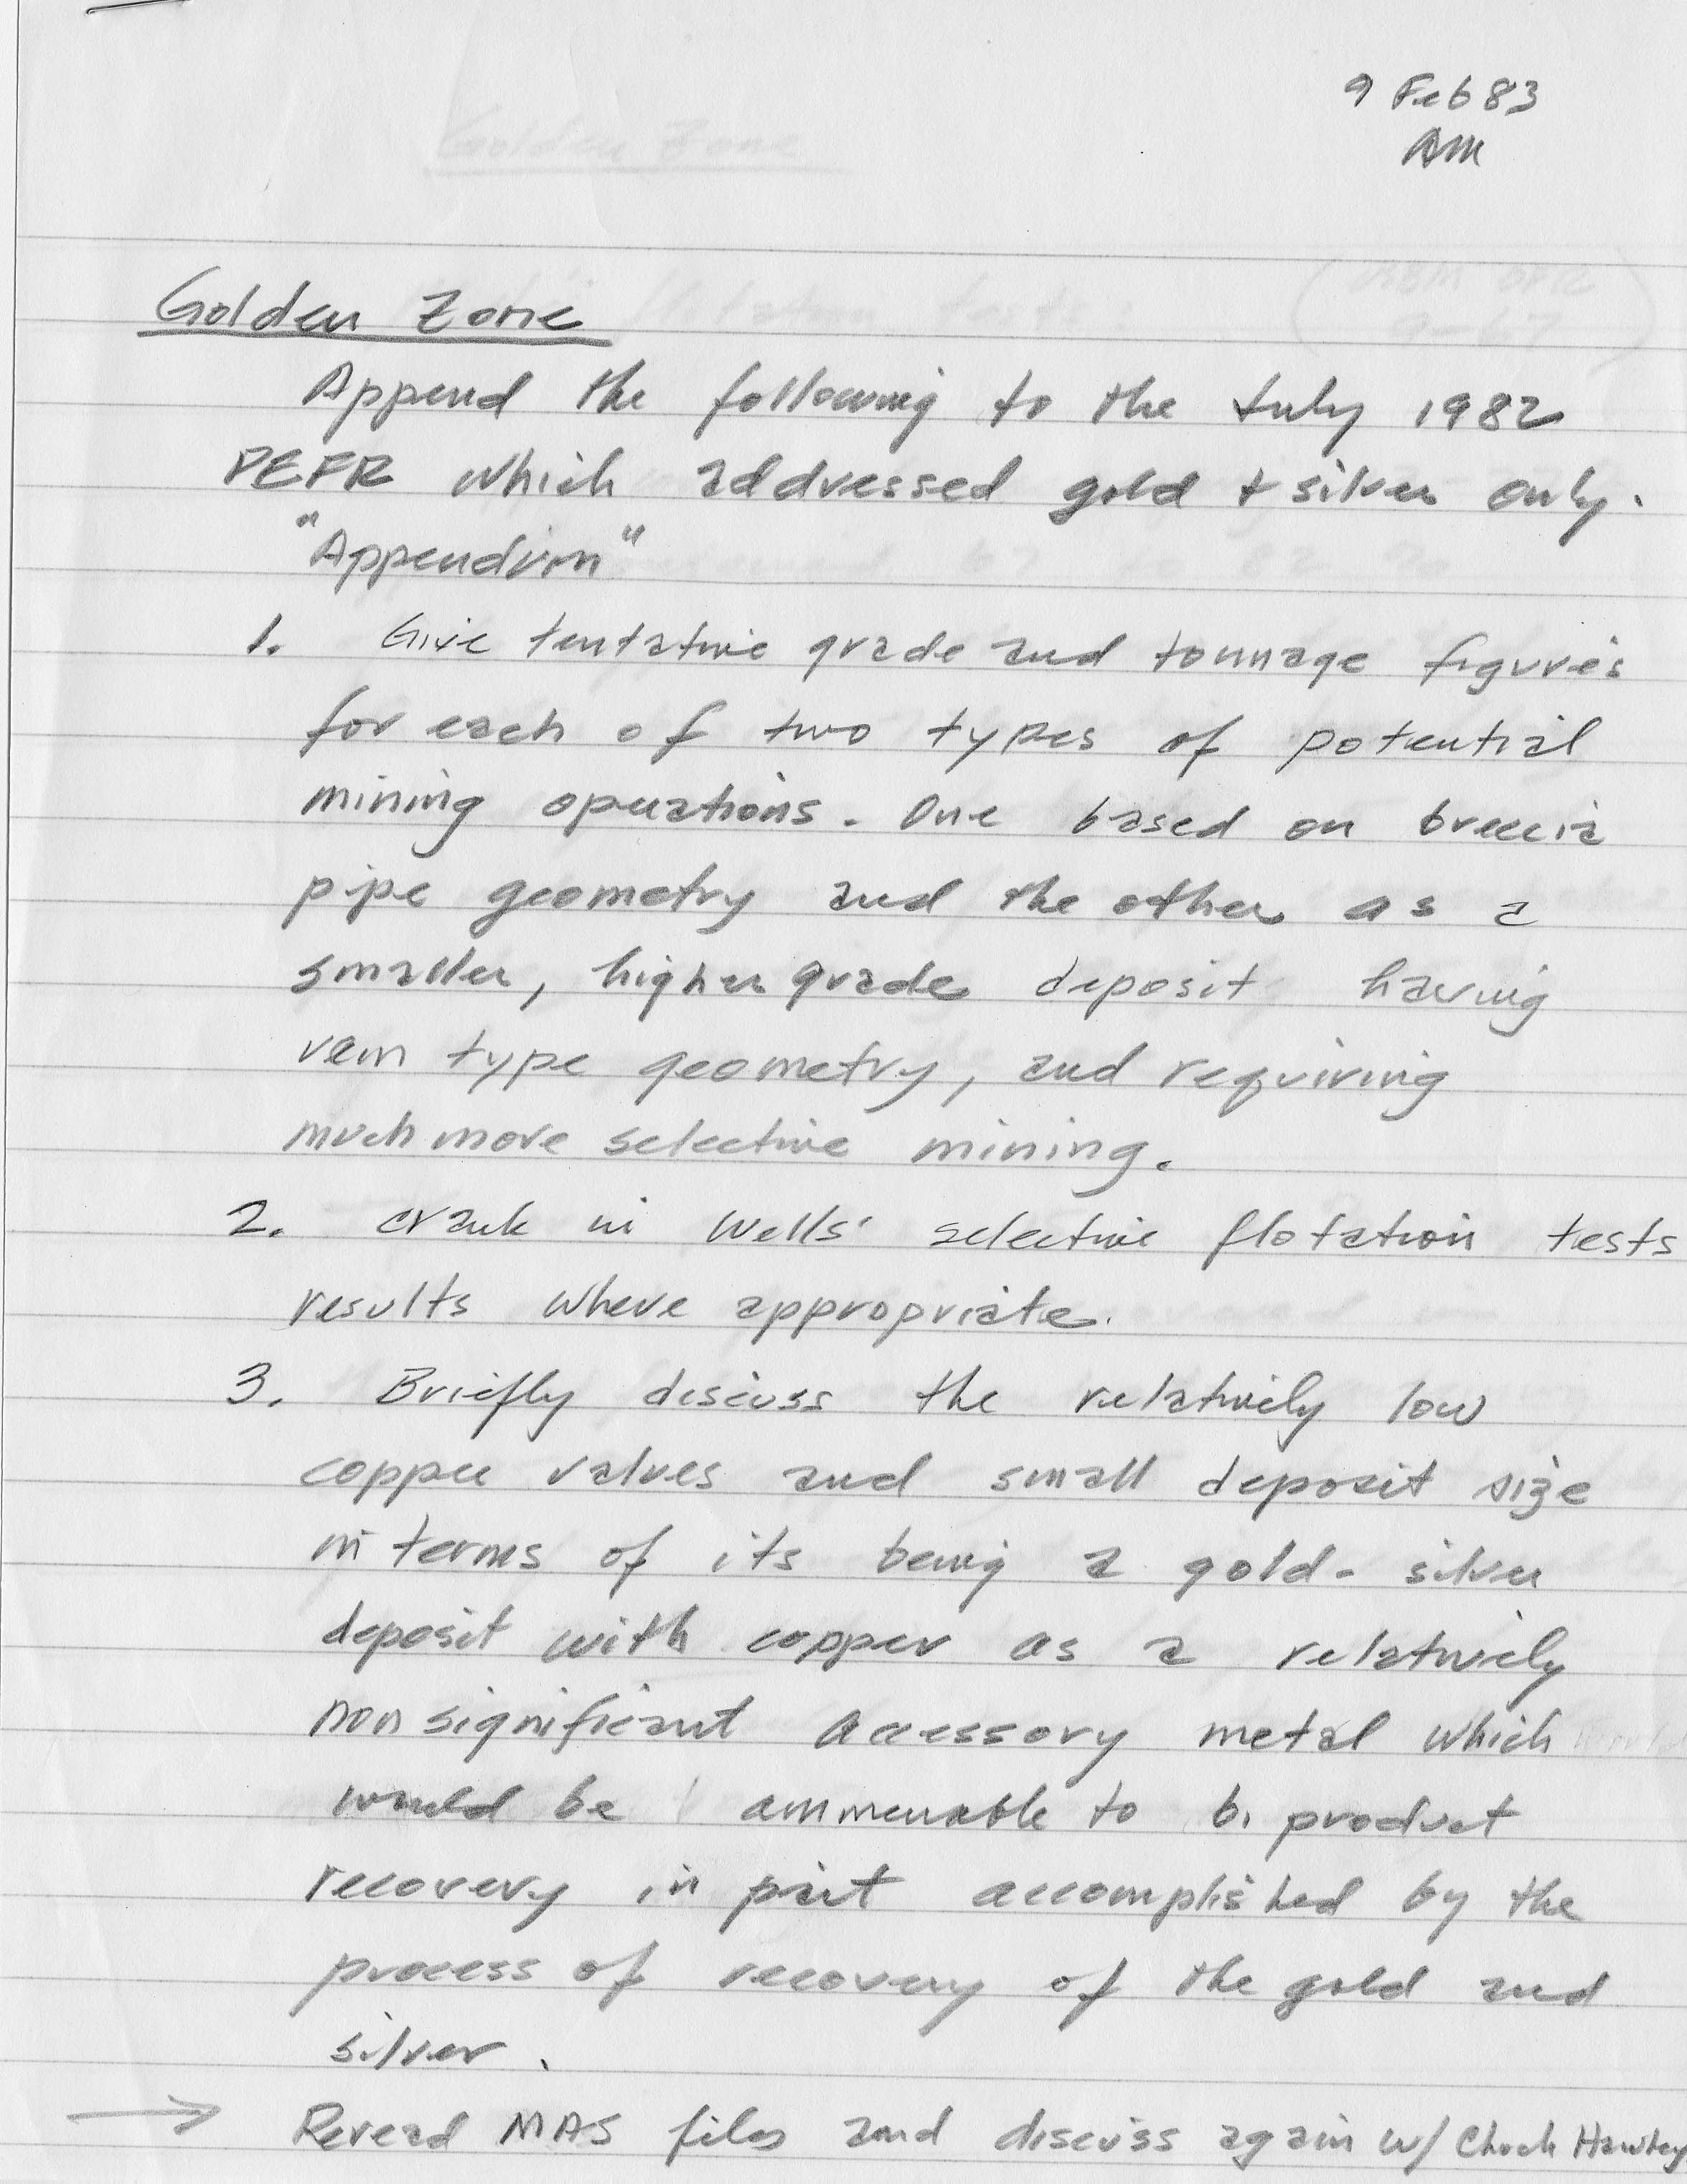 9 Feb 83
AM
Golden Zone
Append the following to the July 1982
PEFR which addressed gold & silver only.
"Appendum"
1. Give tentative grade and tonnage figures
for each of two types of potential
mining operations. One based on breccia
pipe geometry and the other as a
smaller, higher grade deposit having
vein type geometry, and requiring
much more selective mining.
2. crank in Wells' selective flotation tests
results where appropriate.
3. Briefly discuss the relatively low
copper values and small deposit size
in terms of its being a gold-silver
deposit with copper as a relatively
non significant accessory metal which
would be ammenable to bi product
recovery in part accomplished by the
process of recovery of the gold and
silver.
→ Reread MAS files and discuss again w/ Chuck Hawley